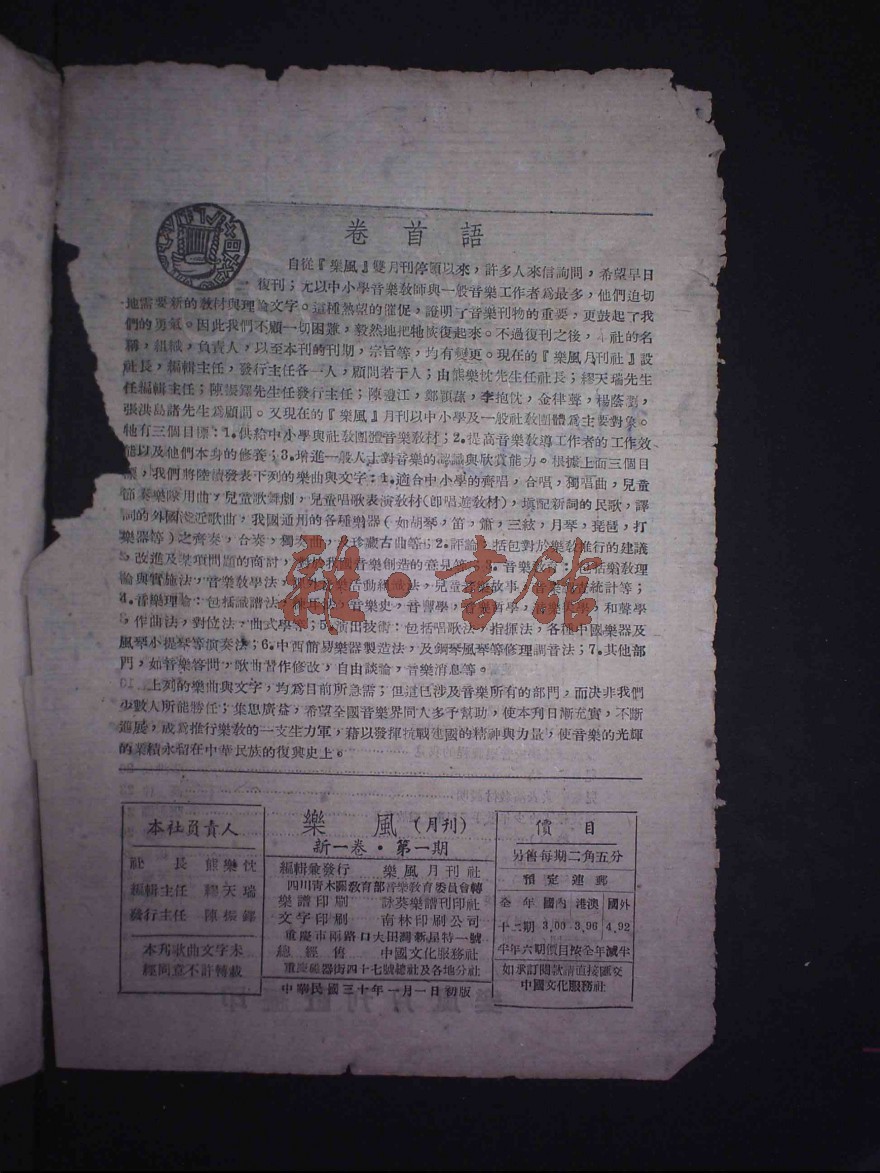 卷首語
自從『樂風』雙月刊停頓以來，許多人來信詢問，希望早日
復刊；尤以中小學音樂教師與一般音樂工作者爲最多，他們迫切
地需要新的教材與理論文字。這種熱望的催促，證明了音樂刊物的重要，更鼓起了我
們的勇氣。因此我們不顧一切困難，毅然地把牠恢復起來。不過復刊之後，本社的名
稱，組織，負責人，以至本刊的刊期，宗旨等，均有變更。現在的『樂風月刊社』設
社長，編輯主任，發行主任各一人，顧問若干人；由熊樂忱先生任社長；繆天瑞先生
任編輯主任；陳振鐸先生任發行主任；陳澧江，鄭穎蓀，李抱忱，金律聲，楊蔭瀏，
張洪島諸先生爲顧問。又現在的『樂風』月刊以中小學及一般社教團體爲主要對象。
牠有三個目標：1.供給中小學與社教團體音樂教材；2.提高音樂教導工作者的工作效
能以及他們本身的修養；3.增進一般人士對音樂的認識與欣賞能力。根據上面三個目
標，我們將陸續發表下列的樂曲與文字：1.適合中小學的齊唱，合唱，獨唱曲，兒童
節奏樂隊用曲，兒童歌舞劇，兒童唱歌表演教材(卽唱遊教材)，填配新詞的民歌，譯
詞的外國淺近歌曲，我國通用的各種樂器（如胡琴，笛，簫，三絃，月琴，琵琶，打
樂器等）之齊奏，合奏，獨奏曲，及珍藏古曲等；2.評論：括包對於樂教推行的建議
，改進及某項問題的商討，對於我國音樂創造的意見等；3.音樂教育：包括樂教理
論與實施法，音樂教學法，課外音樂活動組織法，兒童音樂故事，音樂教育統計等；
4.音樂理論：包括識譜法，練耳法，音樂史，音響學，音樂哲學，音樂美學，和聲學
，作曲法，對位法，曲式學等；5.演出技術：包括唱歌法，指揮法，各種中國樂器及
風琴小提琴等演奏法；6.中西簡易樂器製造法，及鋼琴風琴等修理調音法；7.其他部
門，如音樂答問，歌曲習作修改，自由談論，音樂消息等。
上列的樂曲與文字，均爲目前所急需；但這已涉及音樂所有的部門，而決非我們
少數人所能勝任；集思廣益，希望全國音樂界同人多予幫助，使本刊日漸充實，不斷
進展，成爲推行樂教的一支生力軍，藉以發揮抗戰建國的精神與力量，使音樂的光輝
的業積永留在中華民族的復興史上。
本社負責人
社　長　熊樂忱
編輯主任　繆天瑞
發行主任　陳振鐸
本刋歌曲文字未
經同意不許轉載
樂　風（月刊）
新一卷・第一期
編輯兼發行　樂風月刊社
四川靑木關敎育部音樂敎育委員會轉
樂譜印刷　詠英樂譜刊印社
文字印刷　南林印刷公司
重慶市兩路口夫田灣新屋特一號
總經售　中國文化服務社
重慶磁器街四十七號總社及各地分社
中華民國三十年一月一日初版
價　目
另售每期二角五分
預定連郵
全年 國內 港澳 國外
十二期 3.00 3.96 4.92
半年六期價目按全年減半
如承訂閱款請直接匯交
中國文化服務社
雜・書館